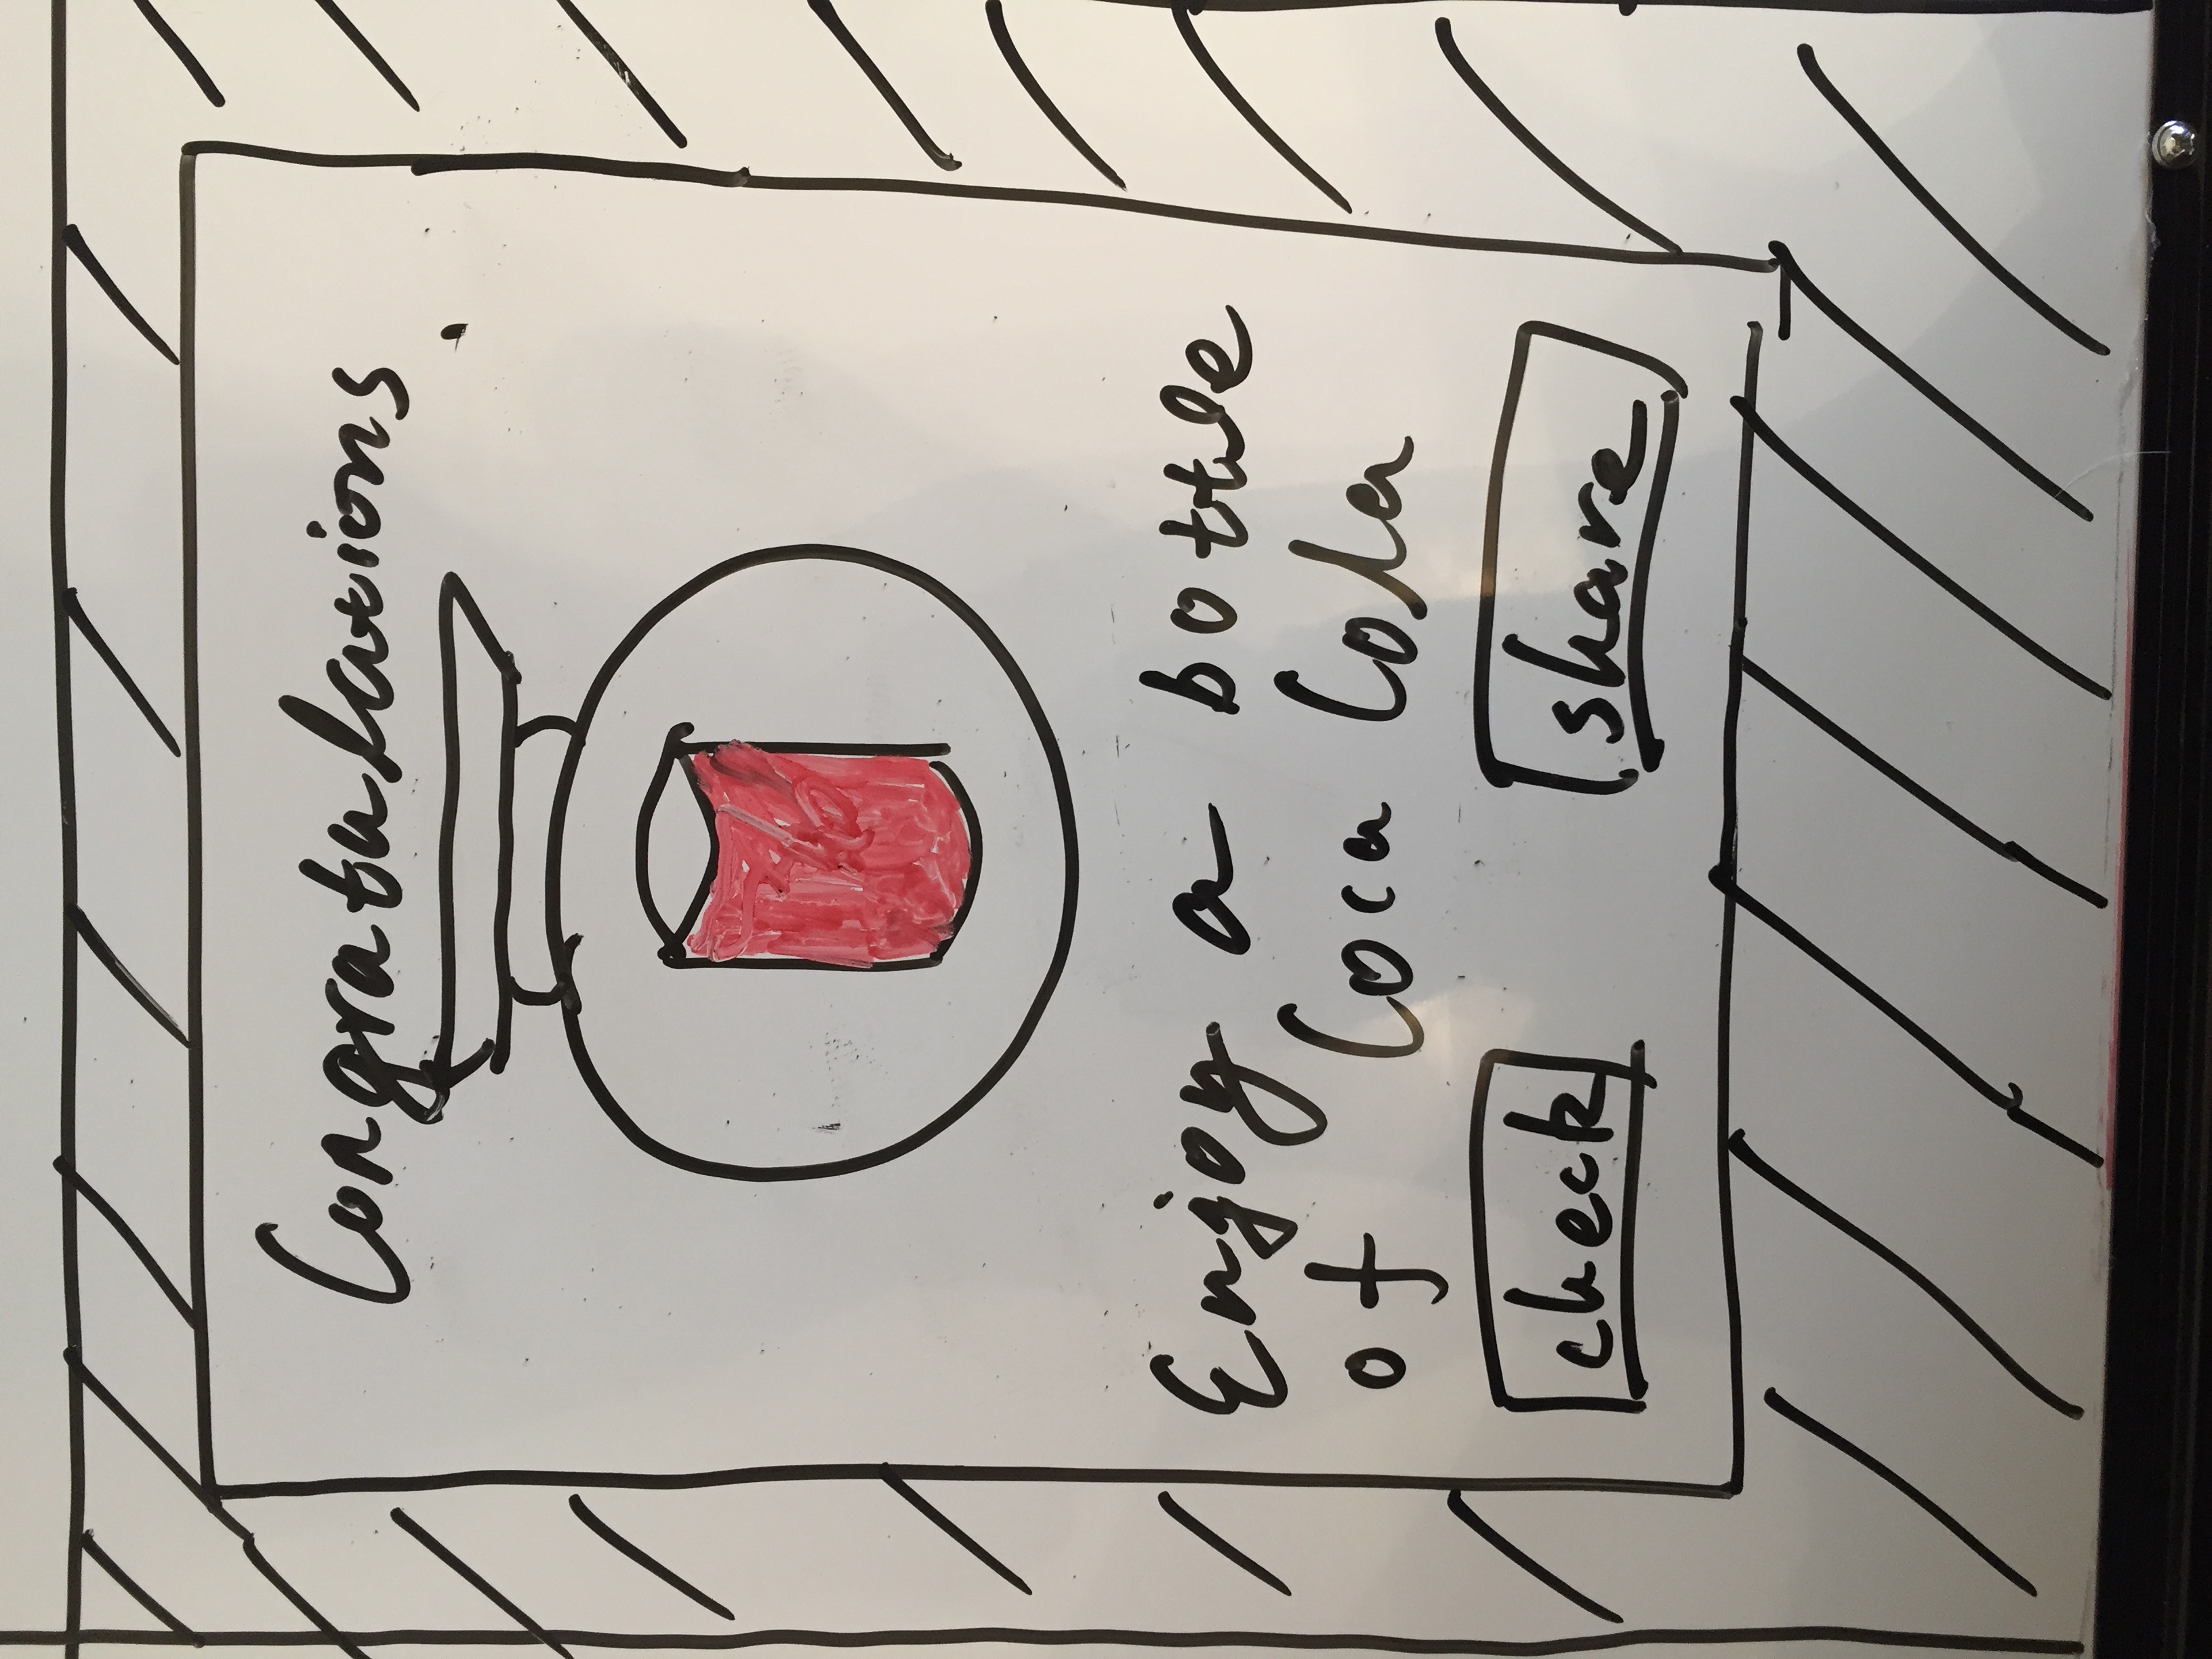 Congratulations
Enjoy a bottle
of Coca Cola
check
share